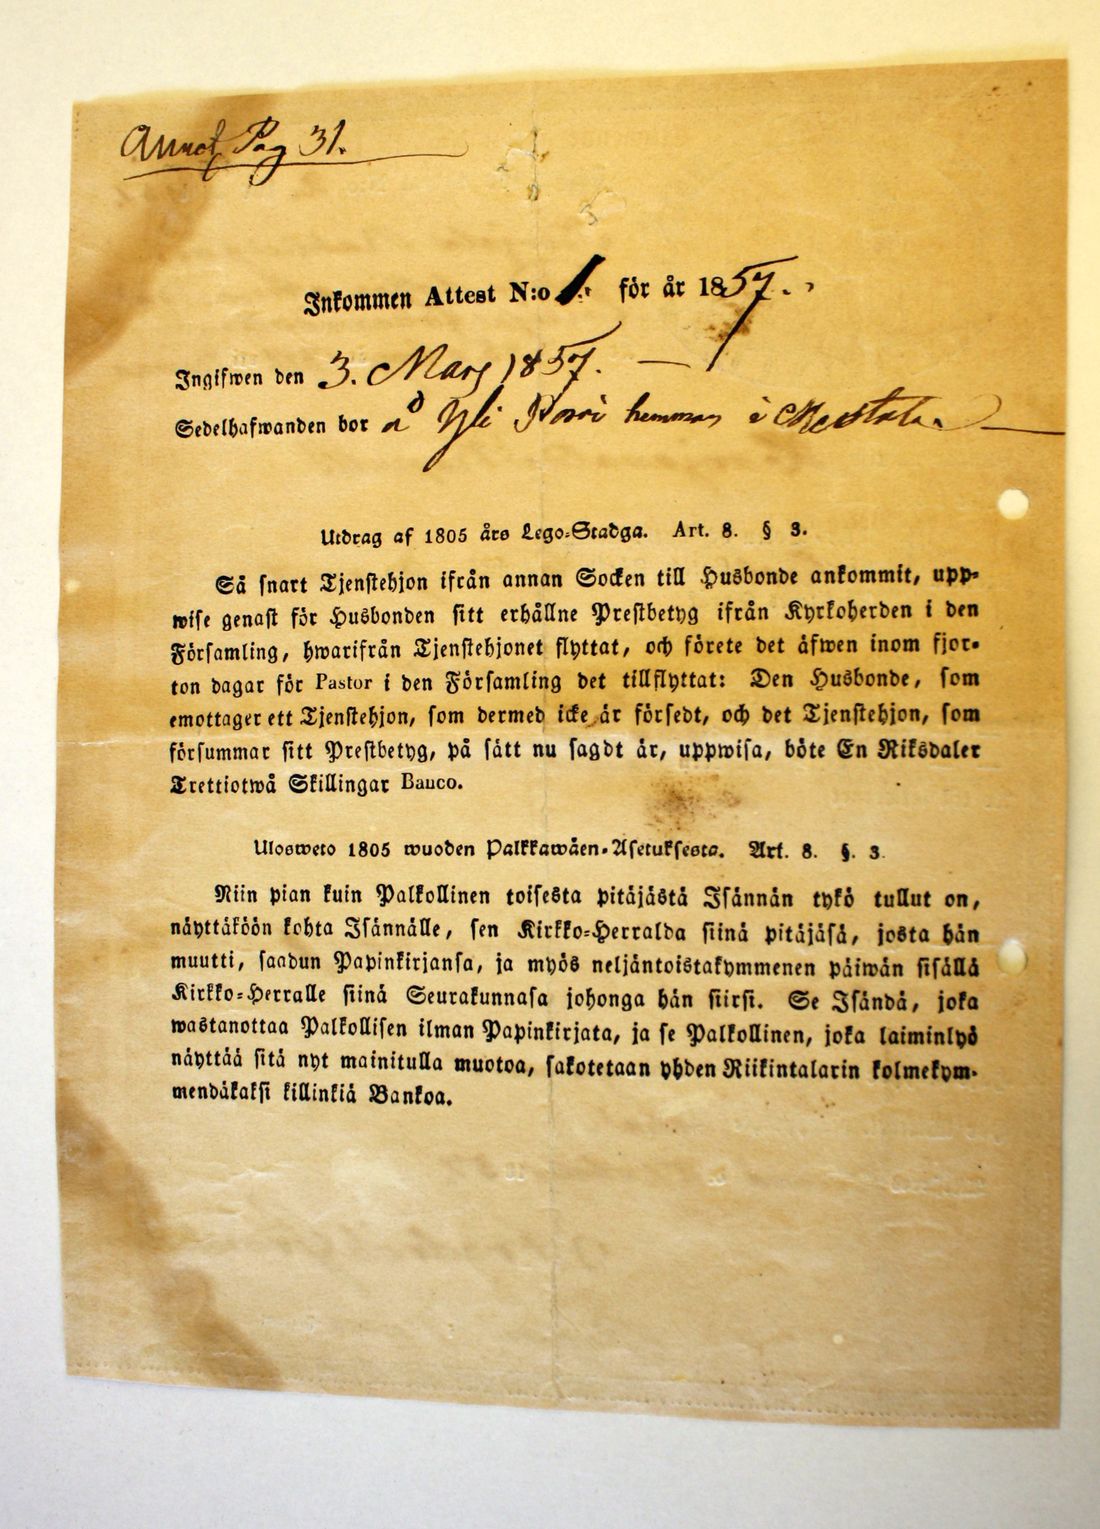 Annot Pag 31.
3
Inkommen Attest N:o 1. för år 1857.
Ingifwen den 3. Mars 1857.
Sedelhafwanden bor å Yli hemman i
Utdrag af 1805 års Lego-Stadga. Art. 8. § 3.
Så snart Tjenstehjon ifrån annan Socken till Husbonde ankommit, upp-
wise genast för Husbonden sitt erhållne Prestbetyg ifrån Kyrkoherden i den
Församling, hwarifrån Tjenstehjonet flyttat, och förete det äfwen inom fjor-
ton dagar för Pastor i den Församling det tillflyttat: Den Husbonde, som
emottager ett Tjenstehjon, som dermed icke är försedt, och det Tjenstehjon, som
försummar sitt Prestbetyg, på sätt nu sagdt är, uppwisa, böte En Riksdaler
Trettiotwå Skillingar Banco.
Ulosweto 1805 wuoden Palkkawäen-Asetuksesta. Art. 8. §. 3.
Niin pian kuin Palkollinen toisesta pitäjästä Isännän tykö tullut on,
näyttäköön kohta Isännälle, sen Kirkko-Herralda siinä pitäjäsä, josta hän
muutti, saadun Papinkirjansa, ja myös neljäntoistakymmenen päiwän sisällä
Kirkko-Herralle siinä Seurakunnasa johonga hän siirsi. Se Isändä, joka
wastanottaa Palkollisen ilman Papinkirjata, ja se Palkollinen, joka laiminlyö
näyttää sitä nyt mainitulla muotoa, sakotetaan yhden Riikintalarin kolmekym-
mendäkaksi killinkiä Bankoa.